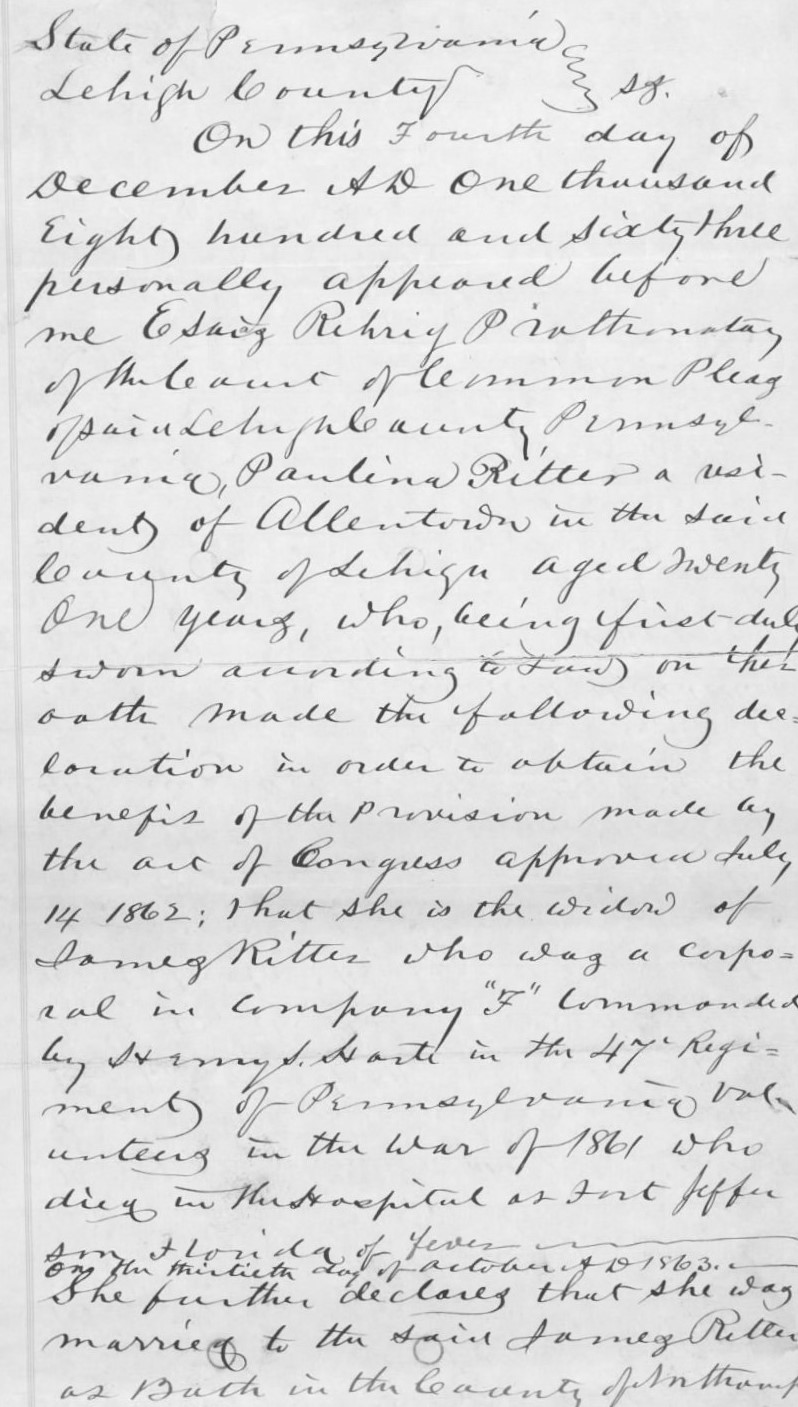 State of Pennsylvania
Lehigh County } ss.
On this Fourth day of
December AD One thousand
Eight hundred and sixty three
personally appeared before
me Esaias Rehrig Prothonotary
of the Court of Common Pleas
of said Lehigh County Pennsyl-
vania, Paulina Ritter a resi-
dent of Allentown in the said
County of Lehigh aged Twenty
One years, who, being first duly
sworn according to Law on her
oath made the following dec=
laration in order to obtain the
benefit of the Provision made by
the act of Congress approved July
14 1862; that she is the widow of
James Ritter who was a corpo=
ral in company "F" Commanded
by Henry S. Harte in the 47' Regi=
ment of Pennsylvania Vol
unteers in the War of 1861 who
died in the Hospital at Fort Jeffer
son Florida of fever
On the thirtieth day of October AD 1863.
She further declares that she was
married to the said James Ritter
at Bath in the County of Northamp